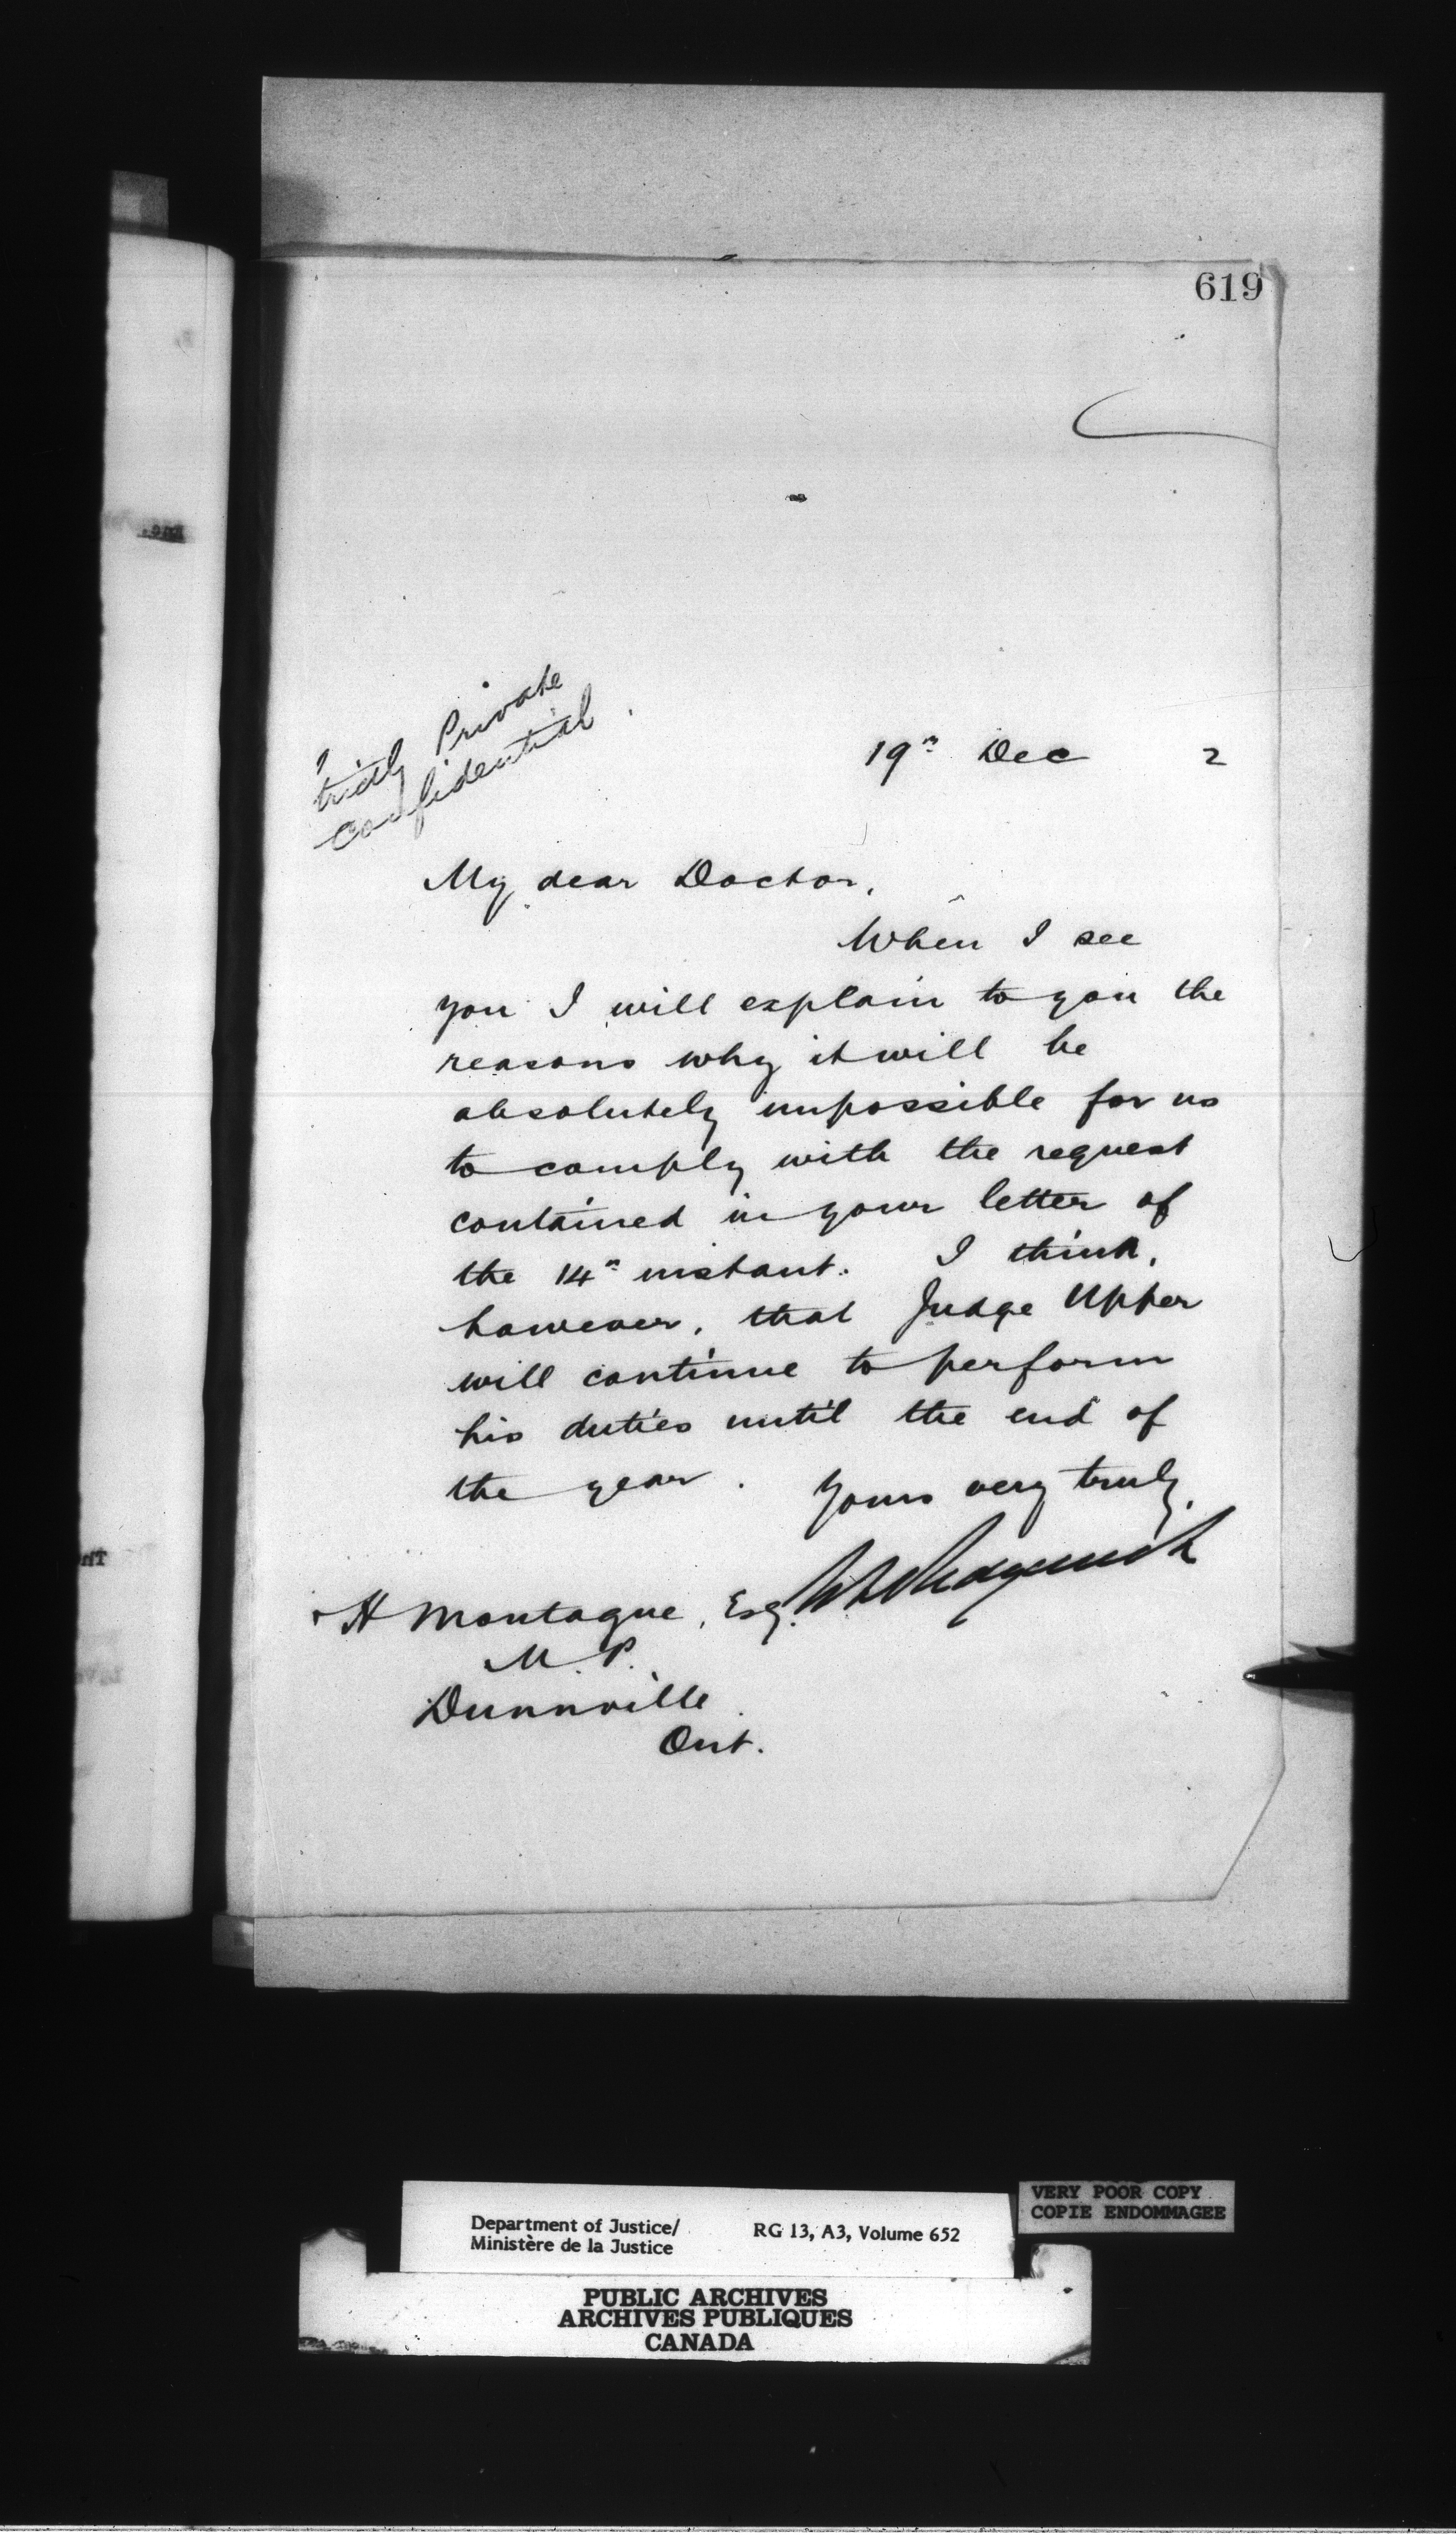 619
trictly Private
confidential.
19th Dec 2
My dear Doctor,
When I see
you I will explain to you the
reasons why it will be
absolutely impossible for us
to comply with the request
contained in your letter of
the 14th instant. I think,
however, that Judge Upper
will continue to perform
his duties until the end of
the year. Yours very truly,
H Montague, Esq. Sedgewick
M.P.
Dunnville
Ont.
Department of Justice/
Ministère de la Justice
RG 13, A3, Volume 652
VERY POOR COPY
COPIE ENDOMMAGEE
PUBLIC ARCHIVES
ARCHIVES PUBLIQUES
CANADA